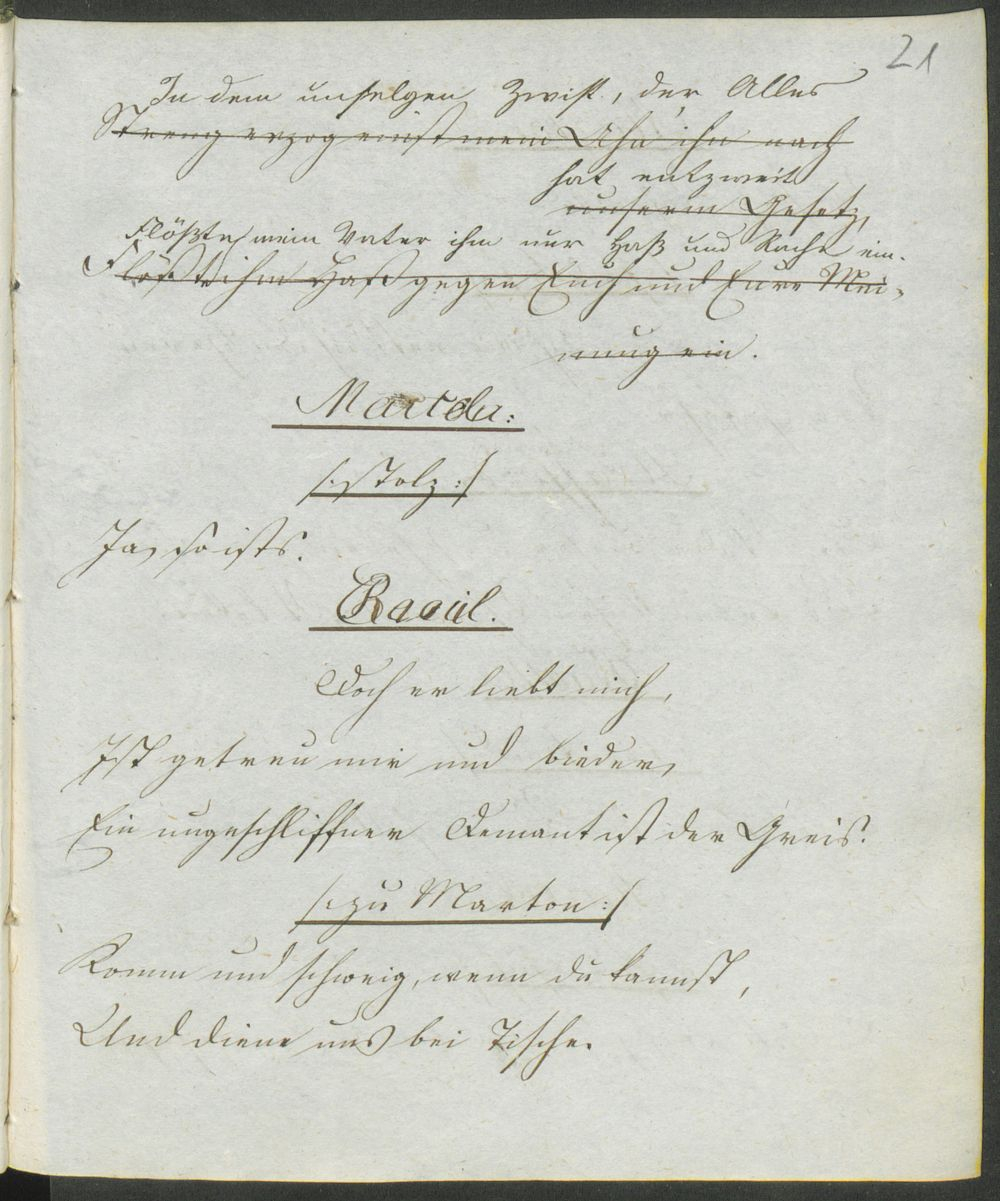 21
In dem unselgen Zwist, der Alles
Streng erzog einst mein Ahn ihn nach
hat entzweit
unserm Gesetz,
Flößte mein Vater ihm nur Haß und Rache ein.
Flößt ihm Haß gegen Euch und Eure Mei-
nung ein.
/: stolz :/
Ja, so ists.
Raoul.
Doch er liebt mich,
Ist getreu mir und bieder,
Ein ungeschliffner Demant ist der Greis.
/: zu Marton :/
Komm und schweig, wenn du kannst,
Und diene uns bei Tische.